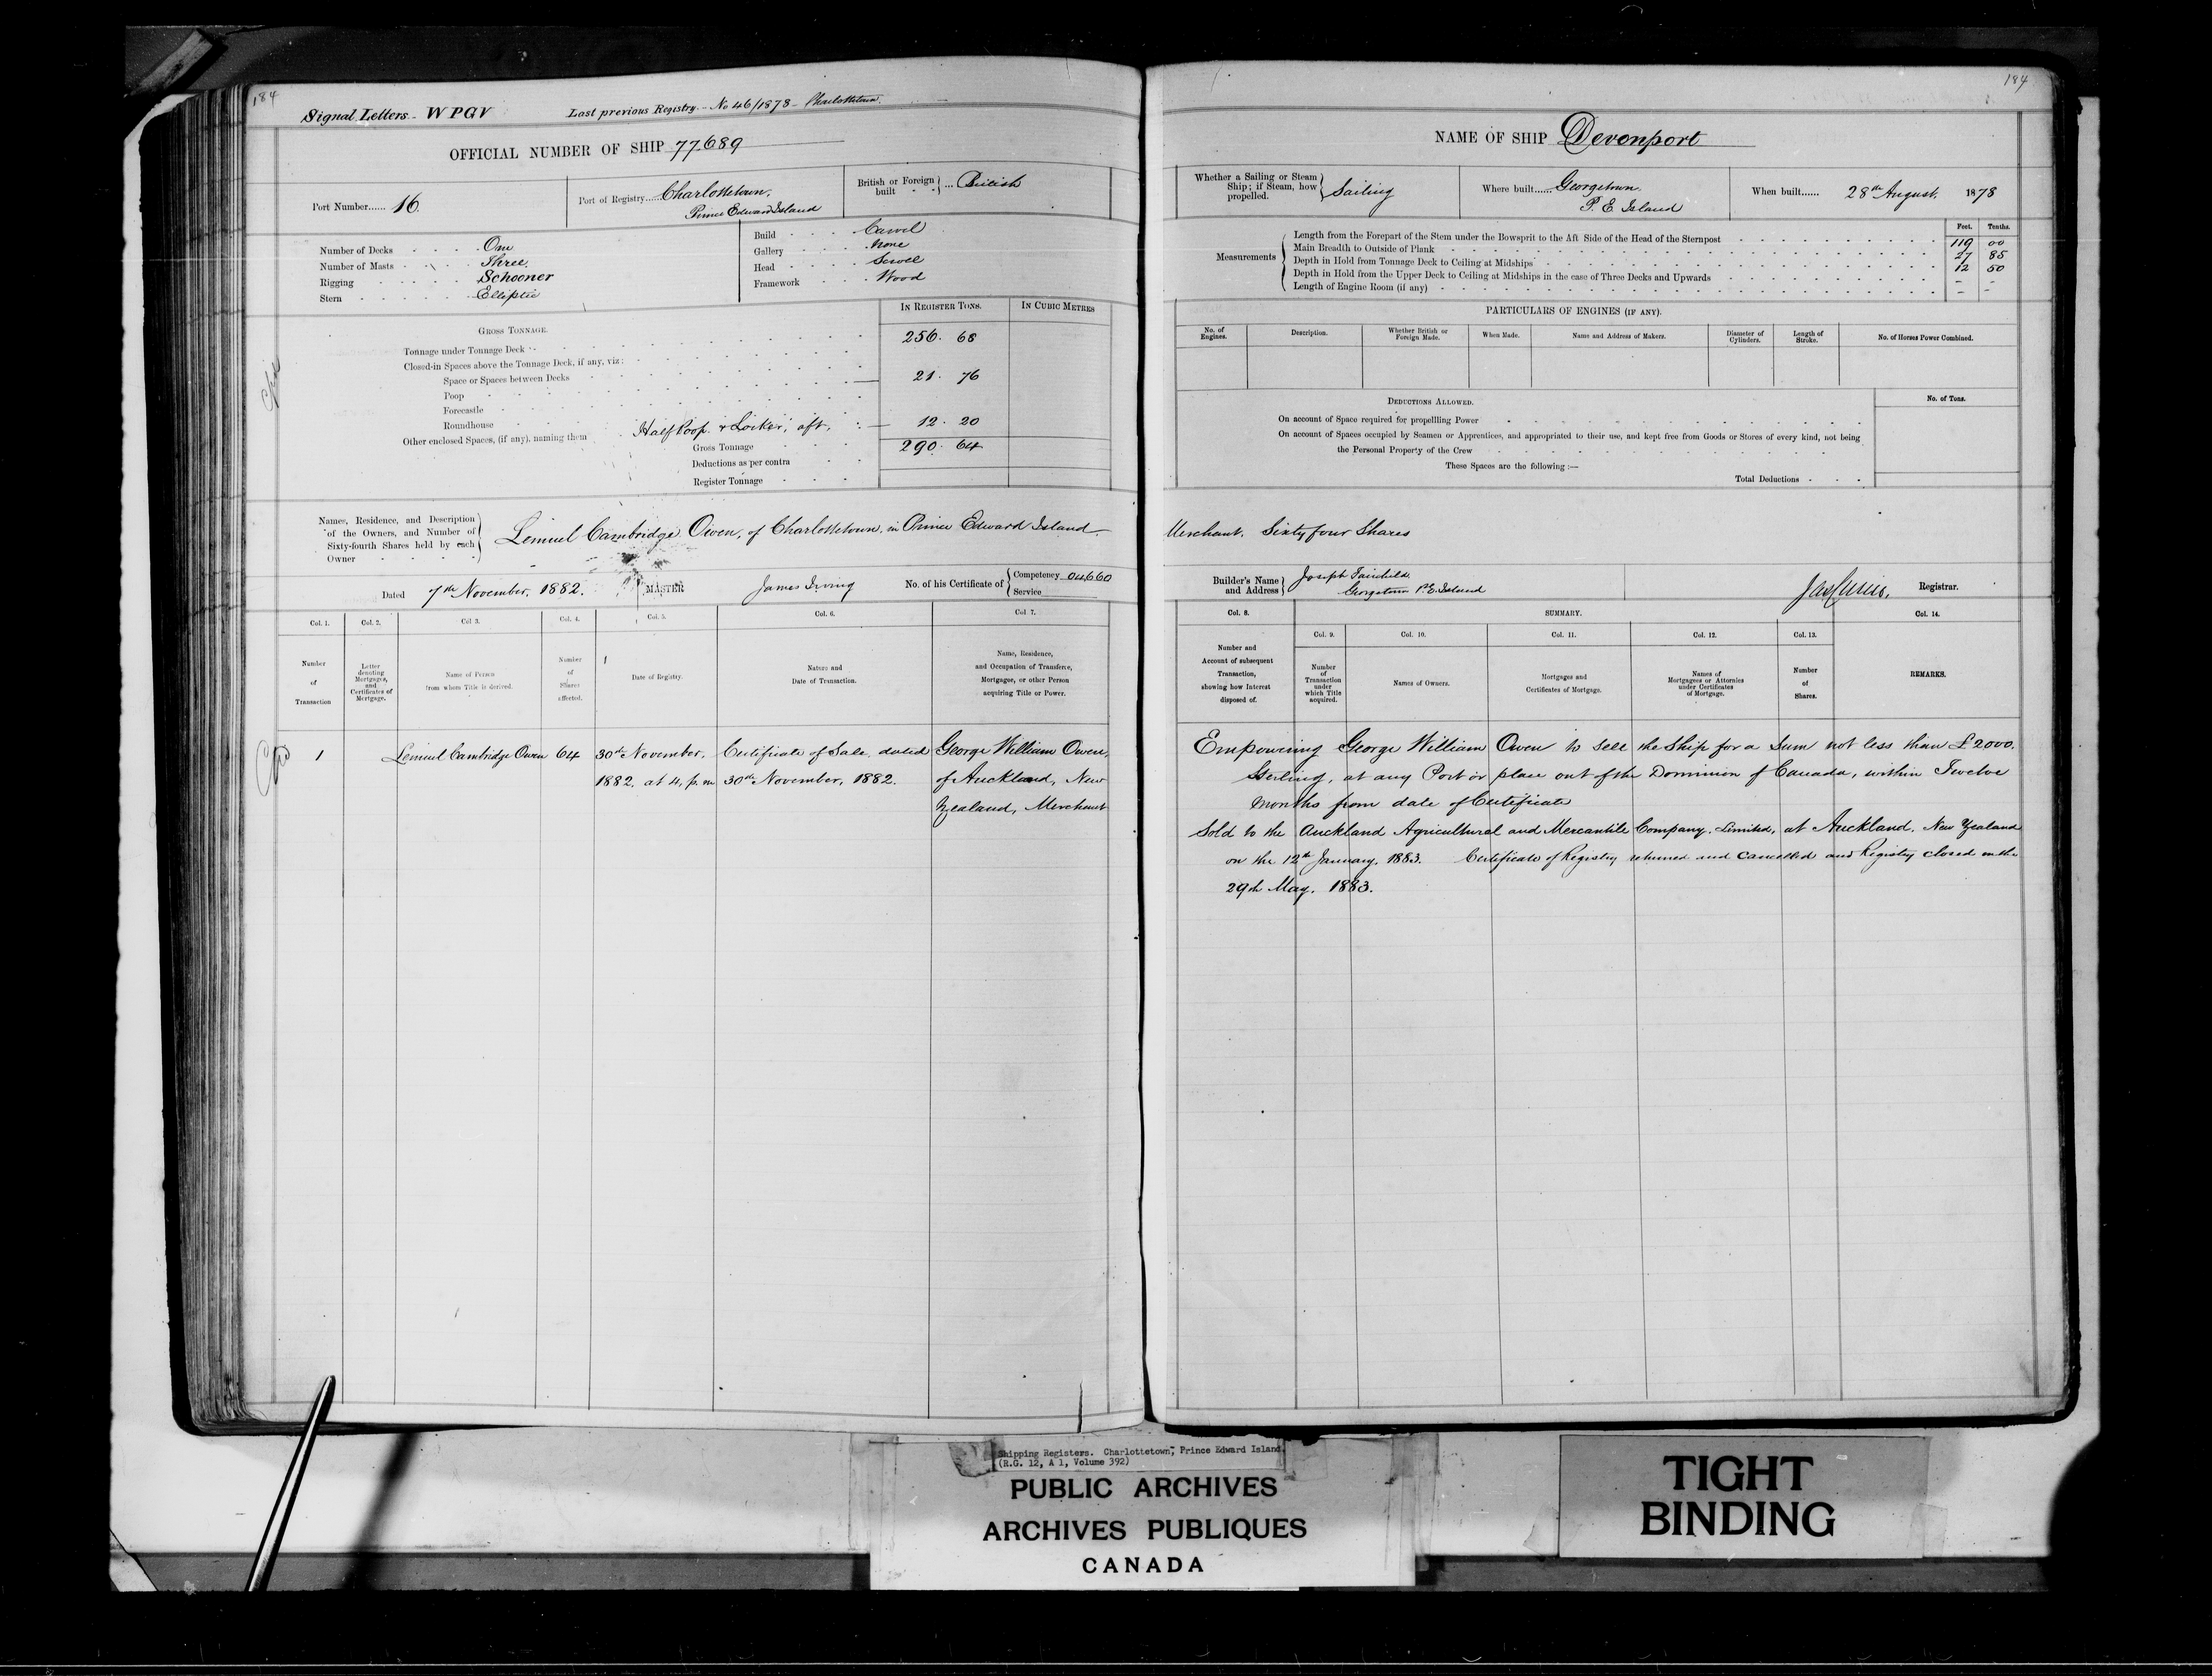 184
Signal Letters - W P G V Last previous Registry - No 46/1878 - Charlottetown.
OFFICIAL NUMBER OF SHIP 77.689
Port Number...... 16.
Port of Registry...... Charlottetown, Prince Edward Island
British or Foreign built ... British
Number of Decks One
Number of Masts Three
Rigging Schooner
Stern Elliptic
Build Carvel
Gallery None
Head Scroll
Framework Wood
IN REGISTER TONS. IN CUBIC METRES
GROSS TONNAGE.
Tonnage under Tonnage Deck 256. 68
Closed-in Spaces above the Tonnage Deck, if any, viz:
Space or Spaces between Decks 21. 76
Poop
Forecastle
Roundhouse
Other enclosed Spaces, (if any), naming them Half Poop & Locker, aft, 12. 20
Gross Tonnage 290. 64
Deductions as per contra
Register Tonnage
Names, Residence, and Description of the Owners, and Number of Sixty-fourth Shares held by each Owner
Lemuel Cambridge Owen, of Charlottetown, in Prince Edward Island
Dated 7th November, 1882. MASTER James Irving No. of his Certificate of Competency 04660 Service
Col. 1. Col. 2. Col 3. Col. 4. Col. 5. Col. 6. Col 7.
Number of Transaction
Letter denoting Mortgages, and Certificates of Mortgage.
Name of Person from whom Title is derived.
Number of Shares effected.
Date of Registry.
Nature and Date of Transaction.
Name, Residence, and Occupation of Transferee, Mortgagee, or other Person acquiring Title or Power.
1 Lemuel Cambridge Owen 64 30th November, Certificate of Sale dated George William Owen,
1882, at 4, p.m 30th November, 1882. of Auckland, New
Zealand, Merchant
184
NAME OF SHIP Devonport
Whether a Sailing or Steam Ship; if Steam, how propelled. Sailing
Where built...... Georgetown, P. E. Island
When built...... 28th August, 1878
Feet. Tenths.
Measurements
Length from the Forepart of the Stem under the Bowsprit to the Aft Side of the Head of the Sternpost 119 00
Main Breadth to Outside of Plank 27 85
Depth in Hold from Tonnage Deck to Ceiling at Midships 12 50
Depth in Hold from the Upper Deck to Ceiling at Midships in the case of Three Decks and Upwards - -
Length of Engine Room (if any) - -
PARTICULARS OF ENGINES (IF ANY).
No. of Engines. Description. Whether British or Foreign Made. When Made. Name and Address of Makers. Diameter of Cylinders. Length of Stroke. No. of Horses Power Combined.
DEDUCTIONS ALLOWED. No. of Tons.
On account of Space required for propellling Power
On account of Spaces occupied by Seamen or Apprentices, and appropriated to their use, and kept free from Goods or Stores of every kind, not being
the Personal Property of the Crew
These Spaces are the following :—
Total Deductions
Merchant. Sixty four Shares
Builder's Name and Address Joseph Fairchild, Georgetown P.E. Island
Registrar.
Col. 8. SUMMARY. Col. 14.
Col. 9. Col. 10. Col. 11. Col. 12. Col. 13.
Number and Account of subsequent Transaction, showing how Interest disposed of.
Number of Transaction under which Title acquired.
Names of Owners.
Mortgages and Certificates of Mortgage.
Names of Mortgagees or Attornies under Certificates of Mortgage.
Number of Shares.
REMARKS.
Empowering George William Owen to sell the Ship for a Sum not less than £2000.
Sterling, at any Port or place out of the Dominion of Canada, within Twelve
months from date of Certificate
Sold to the Auckland Agricultural and Mercantile Company, Limited, at Auckland, New Zealand
on the 12th January, 1883. Certificate of Registry returned and cancelled and Registry closed on the
29th May, 1883.
Shipping Registers. Charlottetown, Prince Edward Island.
(R.G. 12, A 1, Volume 392)
PUBLIC ARCHIVES
ARCHIVES PUBLIQUES
CANADA
TIGHT
BINDING